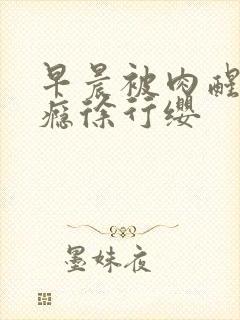 早晨被肉醒
瘾徐行缨
墨妹夜